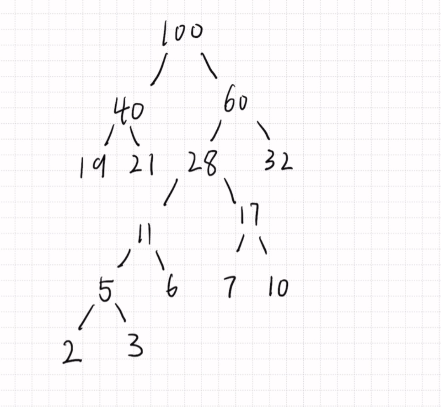 100
40 60
19 21 28 32
11 17
5 6 7 10
2 3